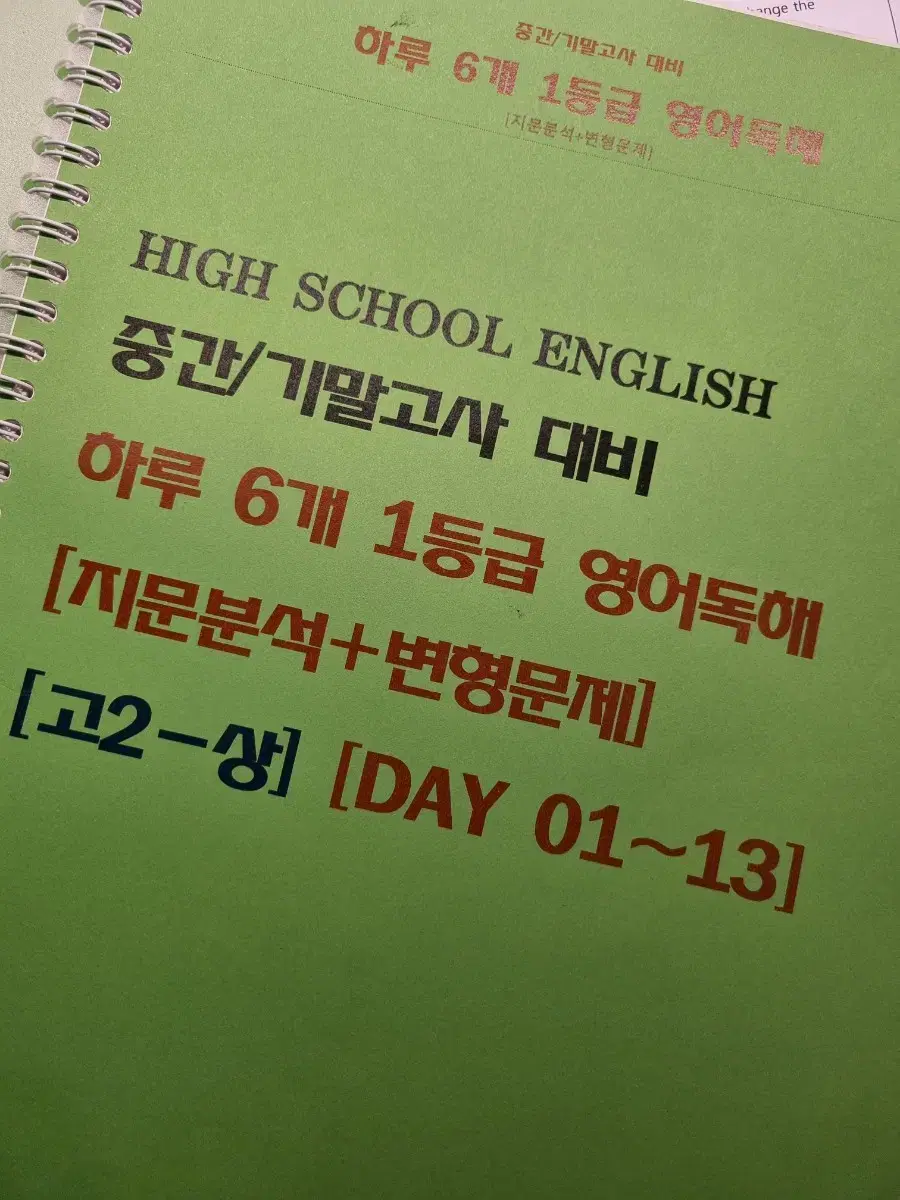 change the
중간/기말고사 대비
하루 6개 1등급 영어독해
[지문분석+변형문제]
HIGH SCHOOL ENGLISH
중간/기말고사 대비
하루 6개 1등급 영어독해
[지문분석+변형문제]
[고2-상] [DAY 01~13]